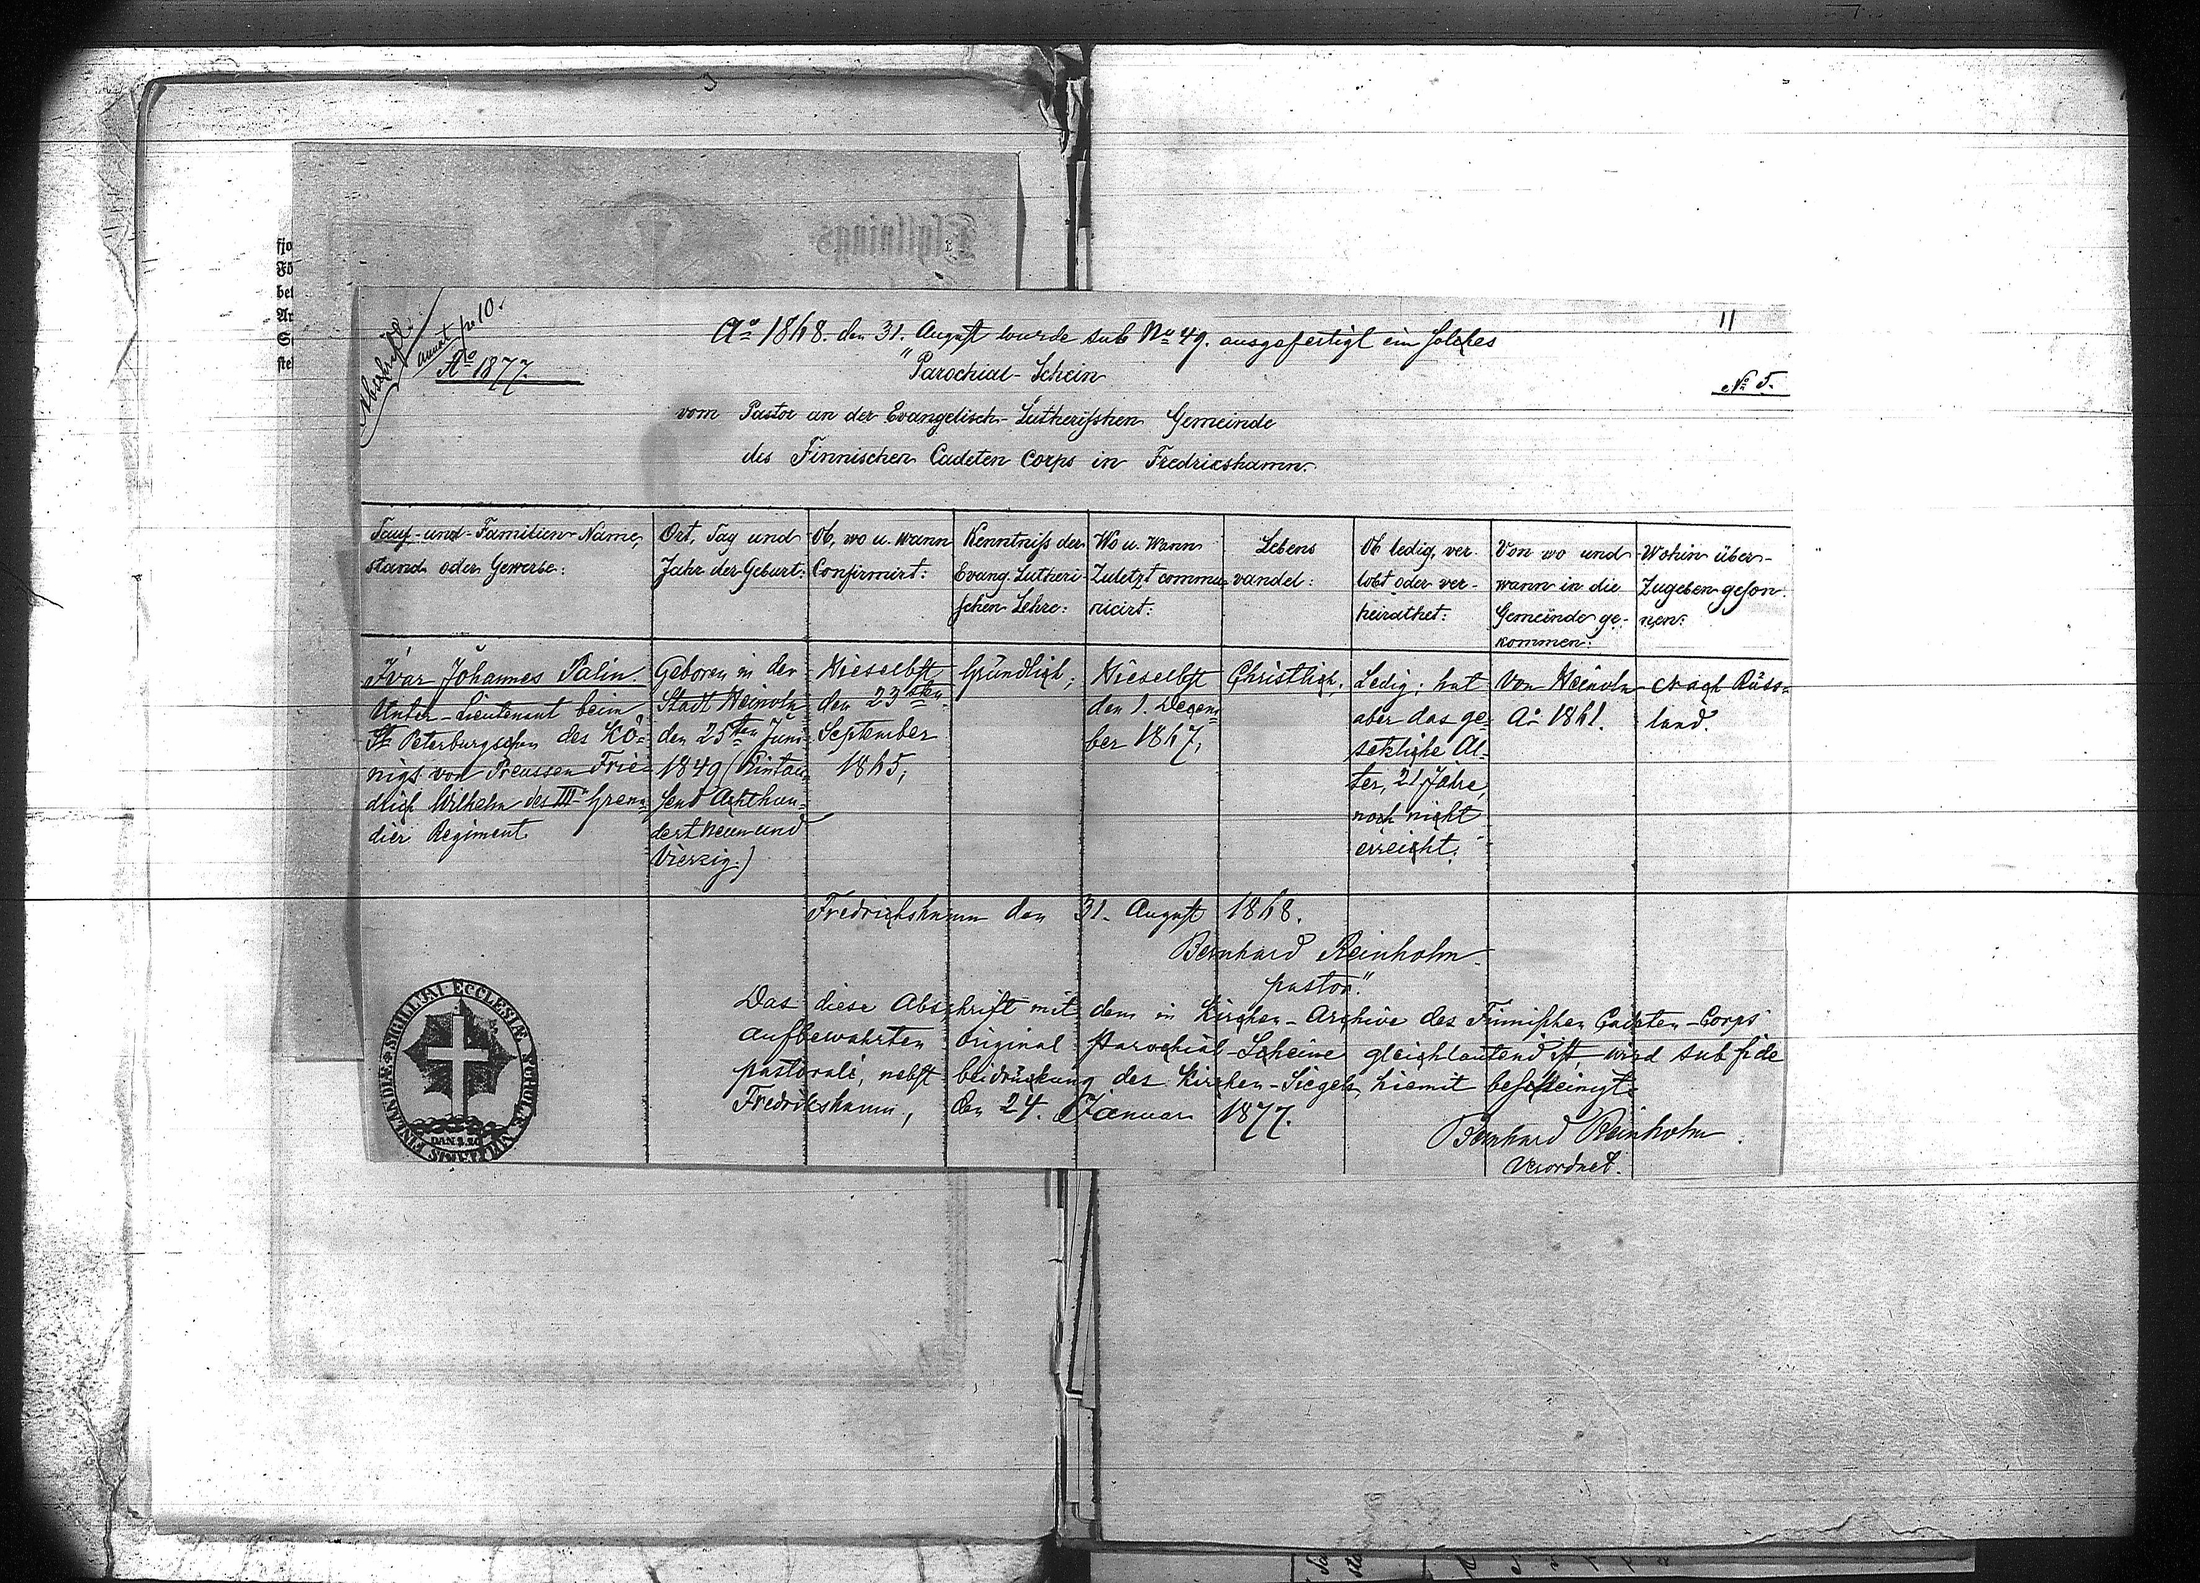 11
Abschrift.
annot. p. 10.
Ao 1877.
No 5.
Ao 1868. den 31. August wurde sub No 49. ausgefertigt ein solches
"Parochial-Schein
vom Pastor an der Evangelisch-Lutherisshen Gemeinde
des Finnischen Cadeten Corps in Fredrickshamn.
Tauf-und-Familien-Name,
stand oder Gewerbe:
Ort, Tag und
Jahr der Geburt:
Ob, wo u. wann
Confirmirt:
Kenntniss der
Evang. Lutheri-
schen Lehre:
Wo u. Wann
Zuletzt commu-
nicirt:
Lebens
vandel:
Ob ledig, ver-
lobt oder ver-
heirathet:
Von wo und
wann in die
Gemeinde ge-
kommen:
Wohin über-
Zugeben geson-
nen:
Ivar Johannes Palin
Unter-Lieutenant beim
St. Petersburgschen des Kö-
nigs von Preussen Frie-
drich Wilhelm des III Grena-
dier Regiment
Geboren in der
Stadt Heinola
den 25ten Juni
1849 (Eintau-
send Achthun-
dert Neun und
Vierzig.)
Hieselbst
den 23sten
September
1865;
Gründlich;
Hieselbst
den 1. Decem-
ber 1867;
Christlich.
Ledig; hat
aber das ge-
setzliche Al-
ter, 21 Jahre,
noch nicht
erreicht;
Von Heinola
Ao 1861.
Nach Russ-
land.
Fredrickshamn den 31. August 1868.
Bernhard Reinholm
pastor."
Das diese Abschrift mit dem in Kirchen-Archive des Finnischen Cadeten-Corps
aufbewahrten original Parochial-Scheine gleichlautend ist, wird sub fide
pastorali, nebst beidrückung des Kirchen-Siegels hiemit bescheinigt.
Fredrikshamn, den 24. Januar 1877.
Bernhard Reinholm.
Verordnet.
SIGILLUM ECCLESIÆ SCHOLÆ MILITARIS FINLANDIÆ